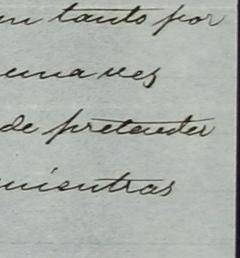 un tanto por
una vez
de pretender
mientras